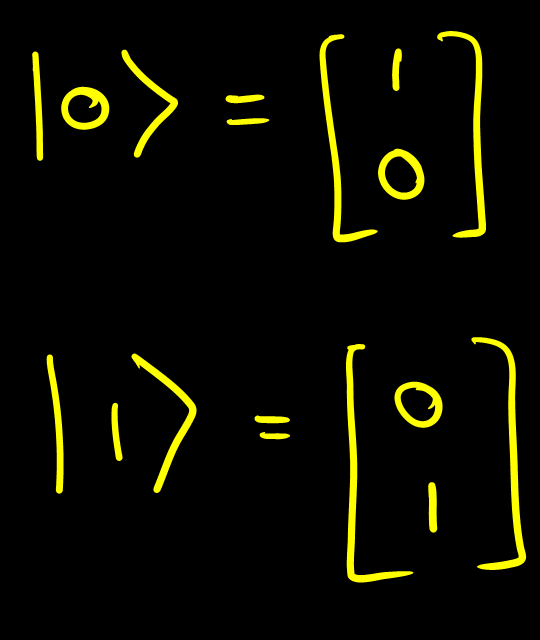 |0⟩ = [1
0]
|1⟩ = [0
1]